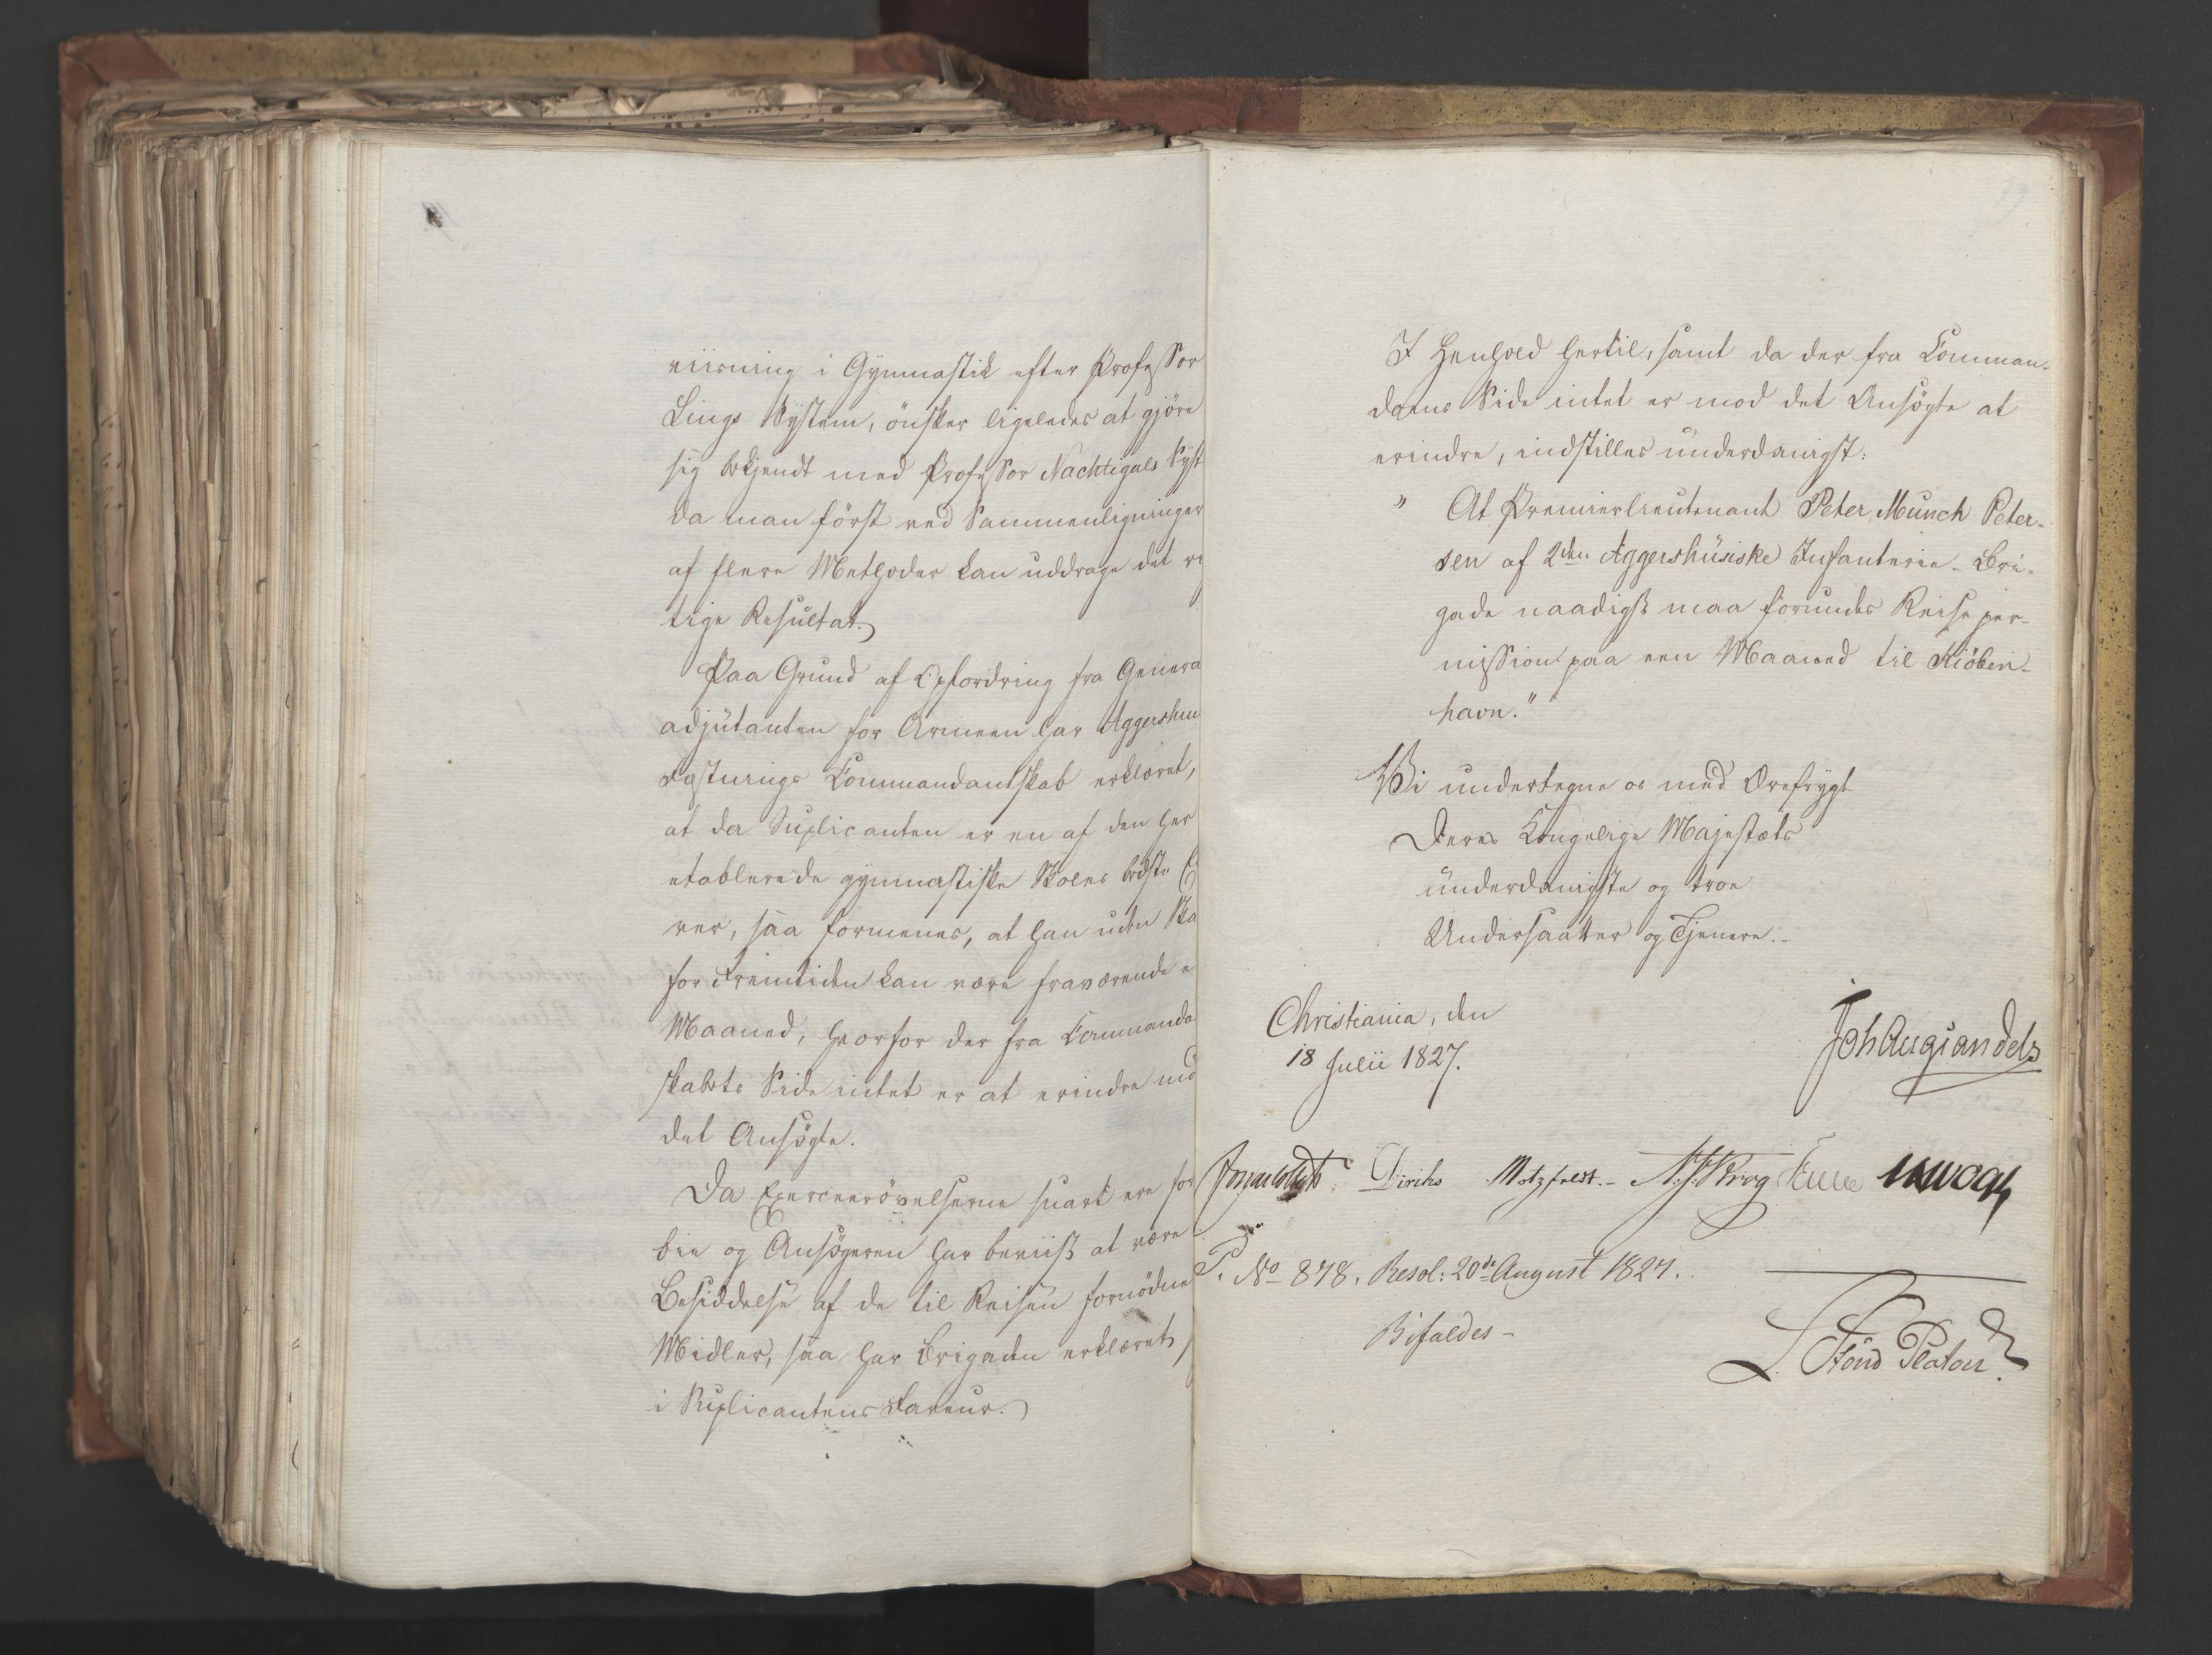 viisning i Gymnastik efter Professor
Lings System, önsker ligeledes at gjöre
sig bekjendt med Professor Nachtigals Syst
da man först ved Sammenligninger
af flere Methoder kan uddrage det ri
tige Resultat.
Paa Grund af Opfordring fra Genera
adjutanten for Armeen har Aggershuu
Fæstnings Commandantskab erklæret,
at da Suplicanten er en af den her
etablerede gymnastiske Skoles bedste E
ver, saa formenes, at han uden Ska
for Fremtiden kan være fraværende e
Maaned, hvorfor der fra Commanda
skabets Side intet er at erindre mod
det Ansögte.
Da Exerceerövelserne snart ere for
bie og Ansögeren har beviist at være i
Besiddelse af de til Reisen fornödne
Midler, saa har Brigaden erklæret,
i Suplicantens Faveur.
I Henhold hertil, samt da der fra Comman-
doens Side intet er mod det Ansögte at
erindre, indstilles underdanigst:
" At Premierlieutenant Peter Munch Peter-
sen af 2den Aggershusiske Infanterie-Bri-
gade naadigst maa forundes Reiseper-
mission paa een Maaned til Kiöben-
havn."
Vi undertegne os med Ærefrygt
Deres Kongelige Majestæts
underdanigste og troe
Undersaatter og Tjenere.-
Christiania, den
18 Julii 1827.
Joh Aug Sandels
Diriks Motzfeldt.- N.J.Krog
P. No 878. Resol: 20de August 1827.
Bifaldes-
L. Stoud Platou